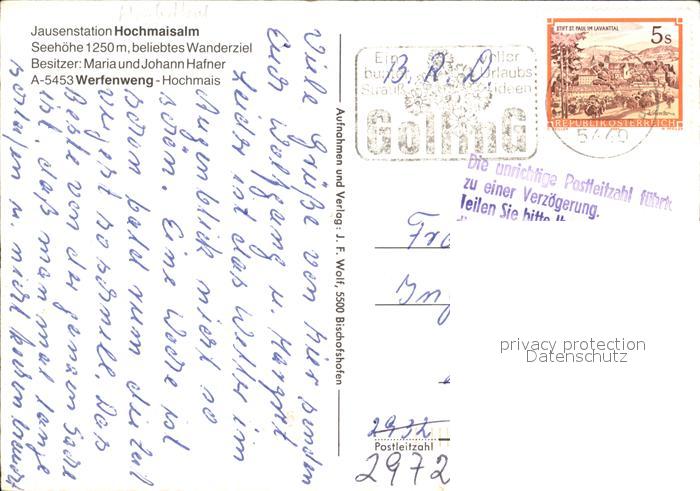 Jausenstation Hochmaisalm
Seehöhe 1250 m, beliebtes Wanderziel
Besitzer: Maria und Johann Hafner
A-5453 Werfenweng - Hochmais
Viele Grüße von hier senden
Euch Wolfgang u. Margret
Leider ist das Wetter im
Augenblick nicht so
schön. Eine Woche ist
schon bald rum die Zeit
vergeht so schnell. Das
Beste von der ganzen Sache
ist, daß man mal lange
schlafen u. nicht kochen braucht
Aufnahmen und Verlag: J. F. Wolf, 5500 Bischofshofen
B. R. D
Ein
voller
Strauß
Urlaubs
ideen
Golling
5440
STIFT ST. PAUL IM LAVANTTAL
5 S
REPUBLIK ÖSTERREICH
Die unrichtige Postleitzahl führte
zu einer Verzögerung.
Teilen Sie bitte
privacy protection
Datenschutz
2932
Postleitzahl
2972